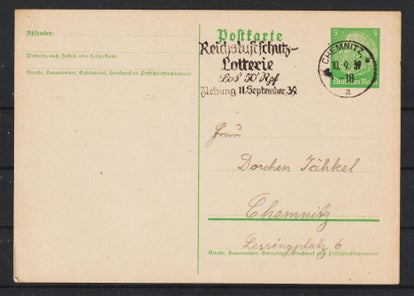 Absender:
Wohnort, auch Zustell- oder Leitpostamt
Straße, Hausnummer, Gebäudeteil, Stockwerk od. Postschließfachnummer
Postkarte
Reichsluftschutz-
Lotterie
Los 50 Rpf
Ziehung 11. September 39
CHEMNITZ
10.9.39
18
a
5 5
Deutsches Reich
Dorchen Jähkel
Chemnitz
Lessingplatz 6
Straße, Hausnummer, Gebäudeteil, Stockwerk od. Postschließfachnummer